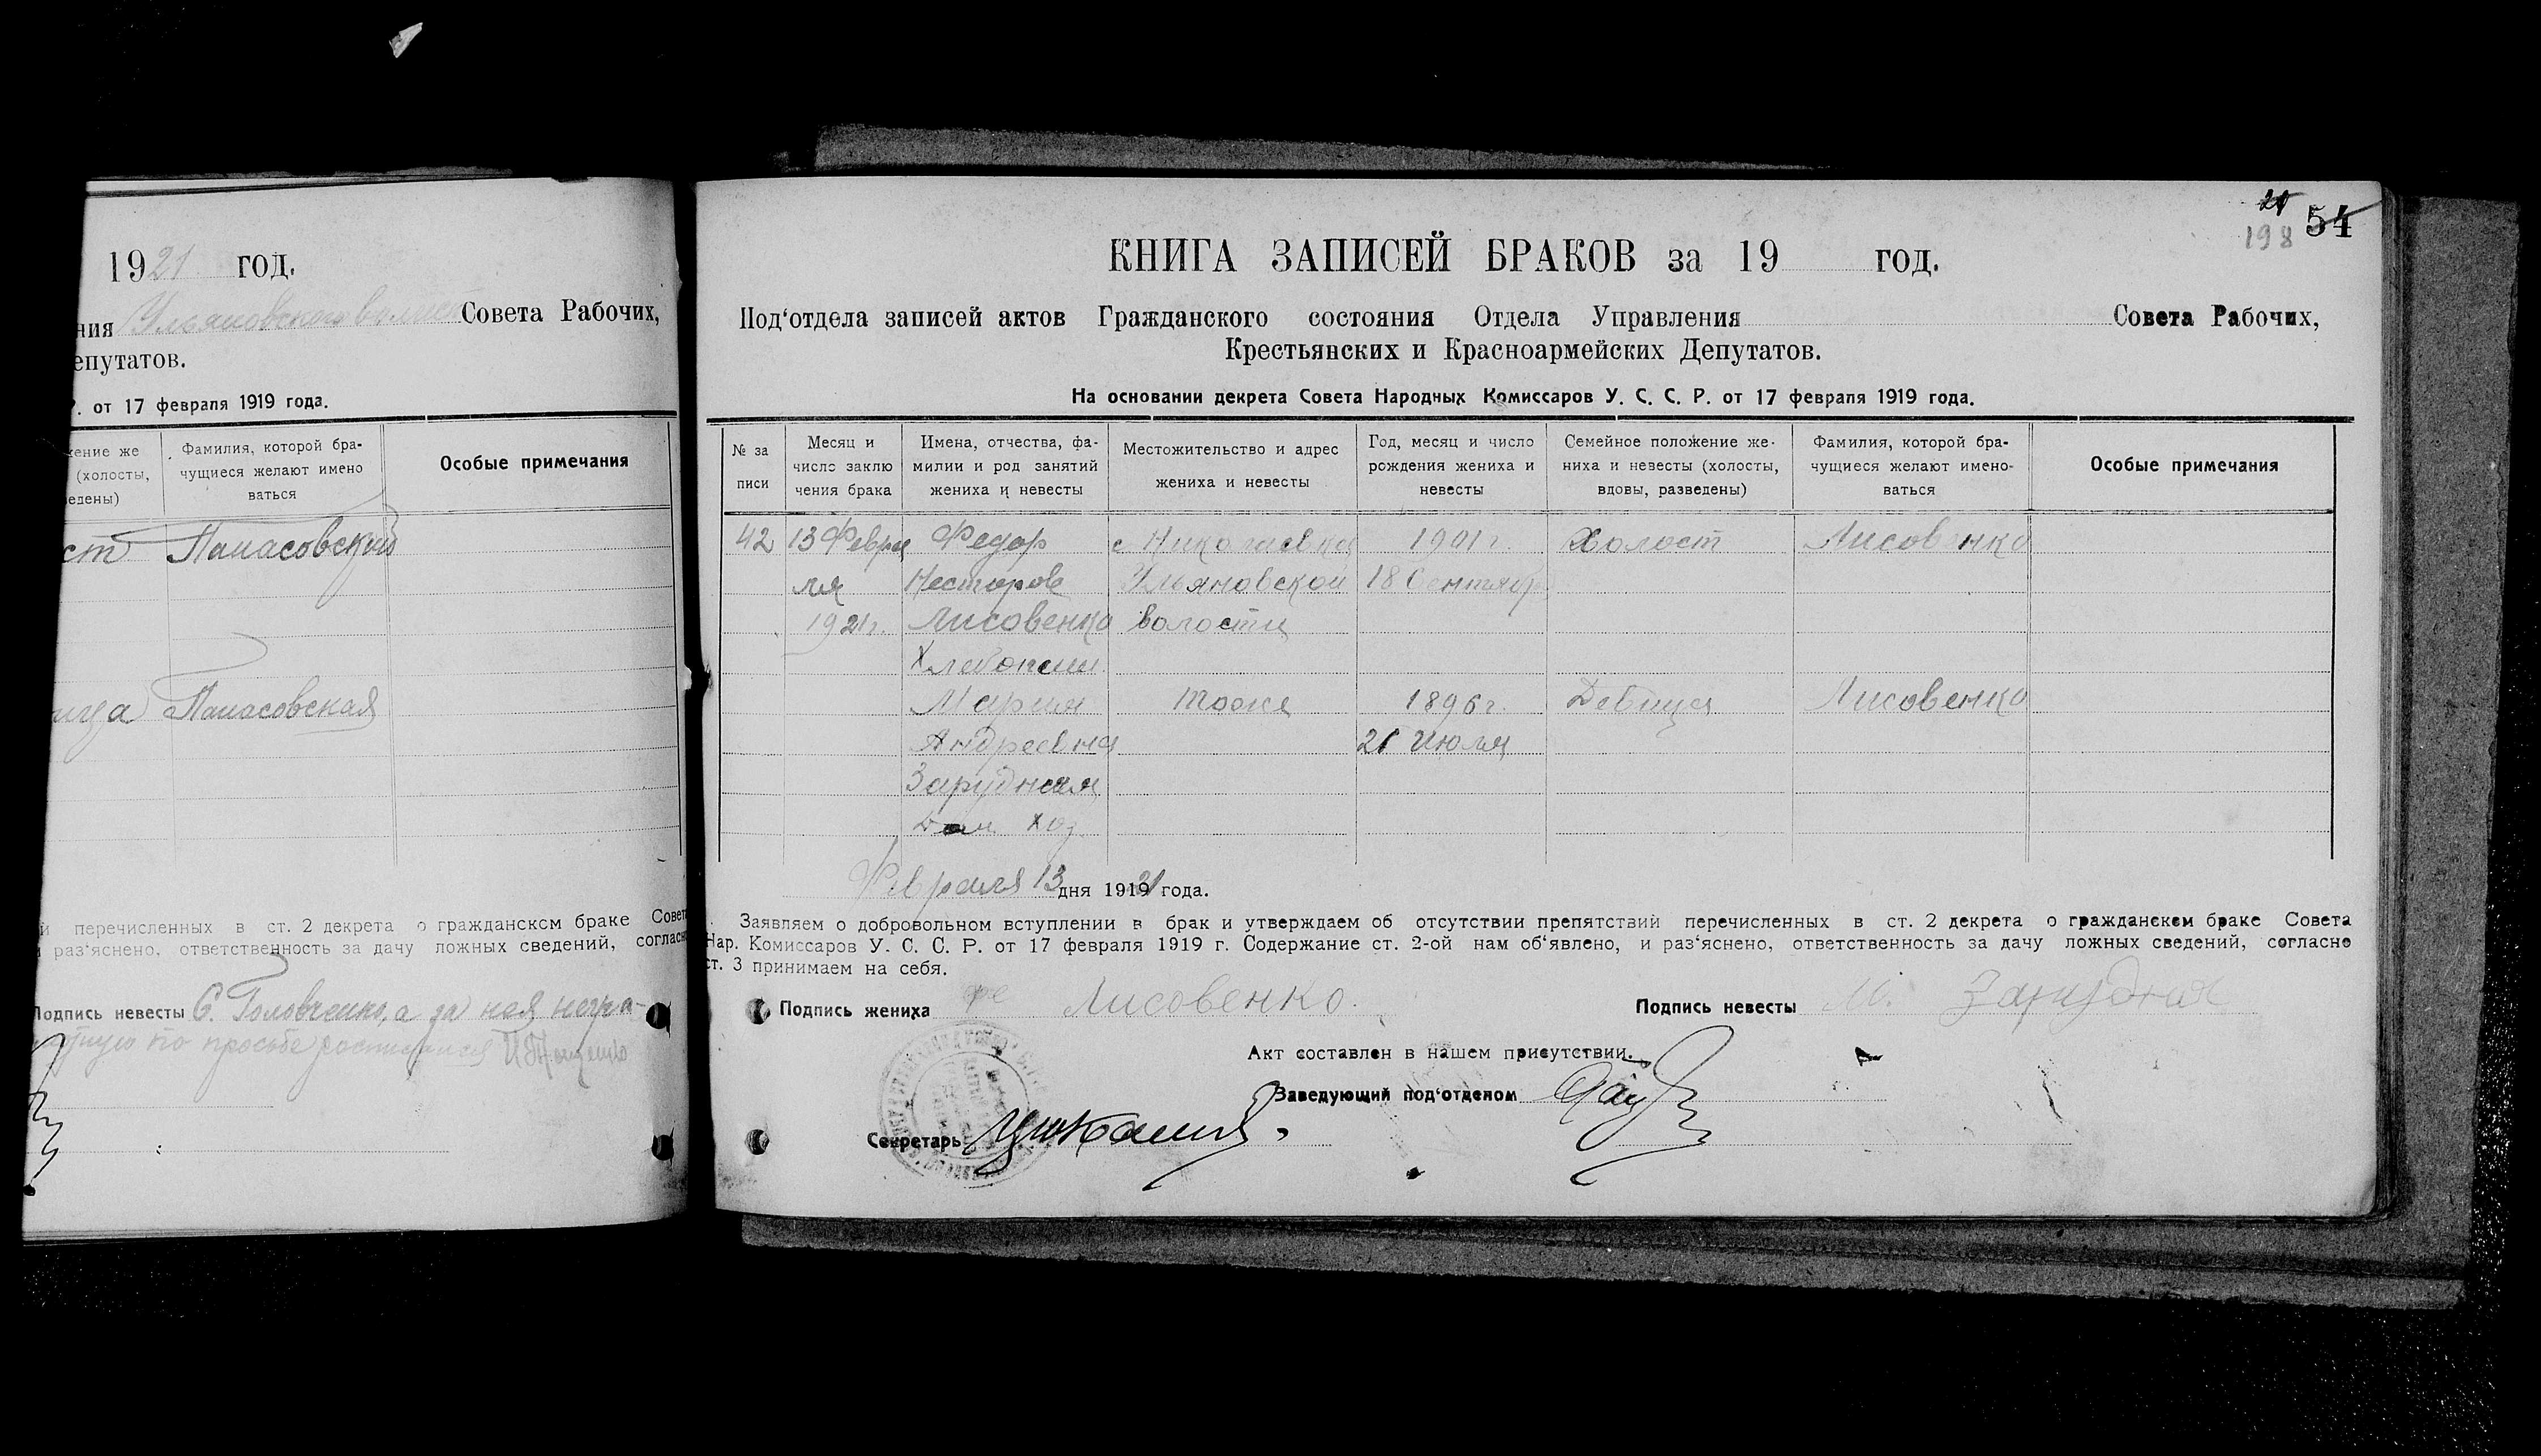 1921 год.
ния Ульяновского волист Совета Рабочих,
епутатов.
Р. от 17 февраля 1919 года.
ение же
(холосты,
ведены)
Фамилия, которой бра-
чущиеся желают имено
ваться
Особые примечания
ст Панасовский
ица Панасовская
й перечисленных в ст. 2 декрета о гражданском браке Совета
и раз‘яснено, ответственность за дачу ложных сведений, согласно
Подпись невесты С. Головченко, а за ней негра-
мотную по просьбе росписался
21
54
198
КНИГА ЗАПИСЕЙ БРАКОВ за 19 год.
Под‘отдела записей актов Гражданского состояния Отдела Управления Совета Рабочих,
Крестьянских и Красноармейских Депутатов.
На основании декрета Совета Народных Комиссаров У. С. С. Р. от 17 февраля 1919 года.
№ за
писи
Месяц и
число заклю
чения брака
Имена, отчества, фа-
милии и род занятий
жениха и невесты
Местожительство и адрес
жениха и невесты
Год, месяц и число
рождения жениха и
невесты
Семейное положение же-
ниха и невесты (холосты,
вдовы, разведены)
Фамилия, которой бра-
чущиеся желают имено-
ваться
Особые примечания
42 13 Февра Федор с. Николаевка 1901 г. Холост Лисовенко
ля Несторов Ульяновской 18 Сентябр
1921 г. Лисовенко волости
Хлебопаш.
Мария тоже 1896 г. Девица Лисовенко
Андреевна 21 Июля
Зарудная
Дом хоз.
Февраля 13 дня 191921 года.
Заявляем о добровольном вступлении в брак и утверждаем об отсутствии препятствий перечисленных в ст. 2 декрета о гражданском браке Совета
Нар. Комиссаров У. С. С. Р. от 17 февраля 1919 г. Содержание ст. 2-ой нам об‘явлено, и раз‘яснено, ответственность за дачу ложных сведений, согласно
ст. 3 принимаем на себя.
Подпись жениха Фе Лисовенко. Подпись невесты М. Зарудная
Акт составлен в нашем присутствии.
Заведующий под‘отделом
Секретарь